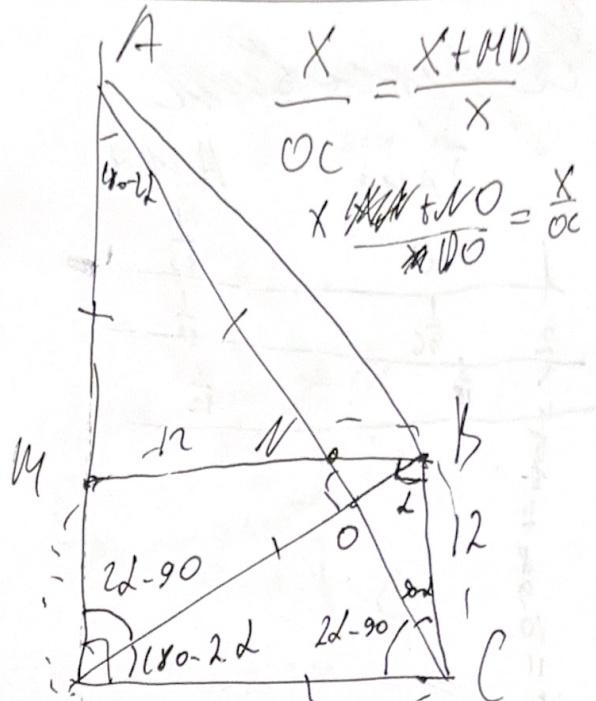 A
X / OC = X+MD / X
X +NO / DO = X / OC
180-2α
M
12
N
B
α
O
12
2α-90
180-2α
2α-90
C